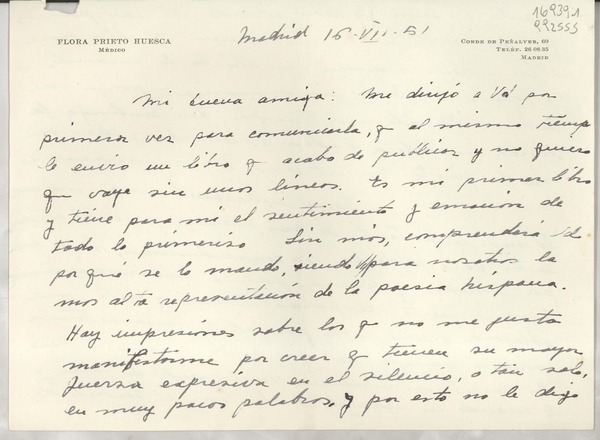 169391
992555
FLORA PRIETO HUESCA
MÉDICO
Madrid 16-VII-51
CONDE DE PEÑALVER, 69
TELÉF. 26 08 35
MADRID
Mi buena amiga: Me dirijo a Vd por
primera vez para comunicarla, q al mismo tiempo
le envio un libro q acabo de publicar y no quiero
que vaya sin unas lineas. Es mi primer libro
y tiene para mi el sentimiento y emoción de
todo lo primerizo Sin más, comprenderá Vd
por que se lo mando, siendo Vd para nosotros la
mas alta representación de la poesia hispana.
Hay impresiones sobre las q no me gusta
manifestarme por creer q tienen su mayor
fuerza expresiva en el silencio, o tan solo,
en muy pocas palabras, y por esto no le digo